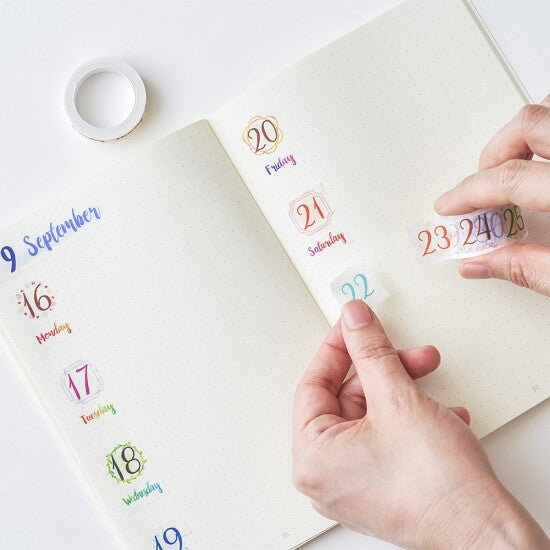 9 September
16
Monday
17
Tuesday
18
Wednesday
19
20
Friday
21
Saturday
22
23 24 25
36
37